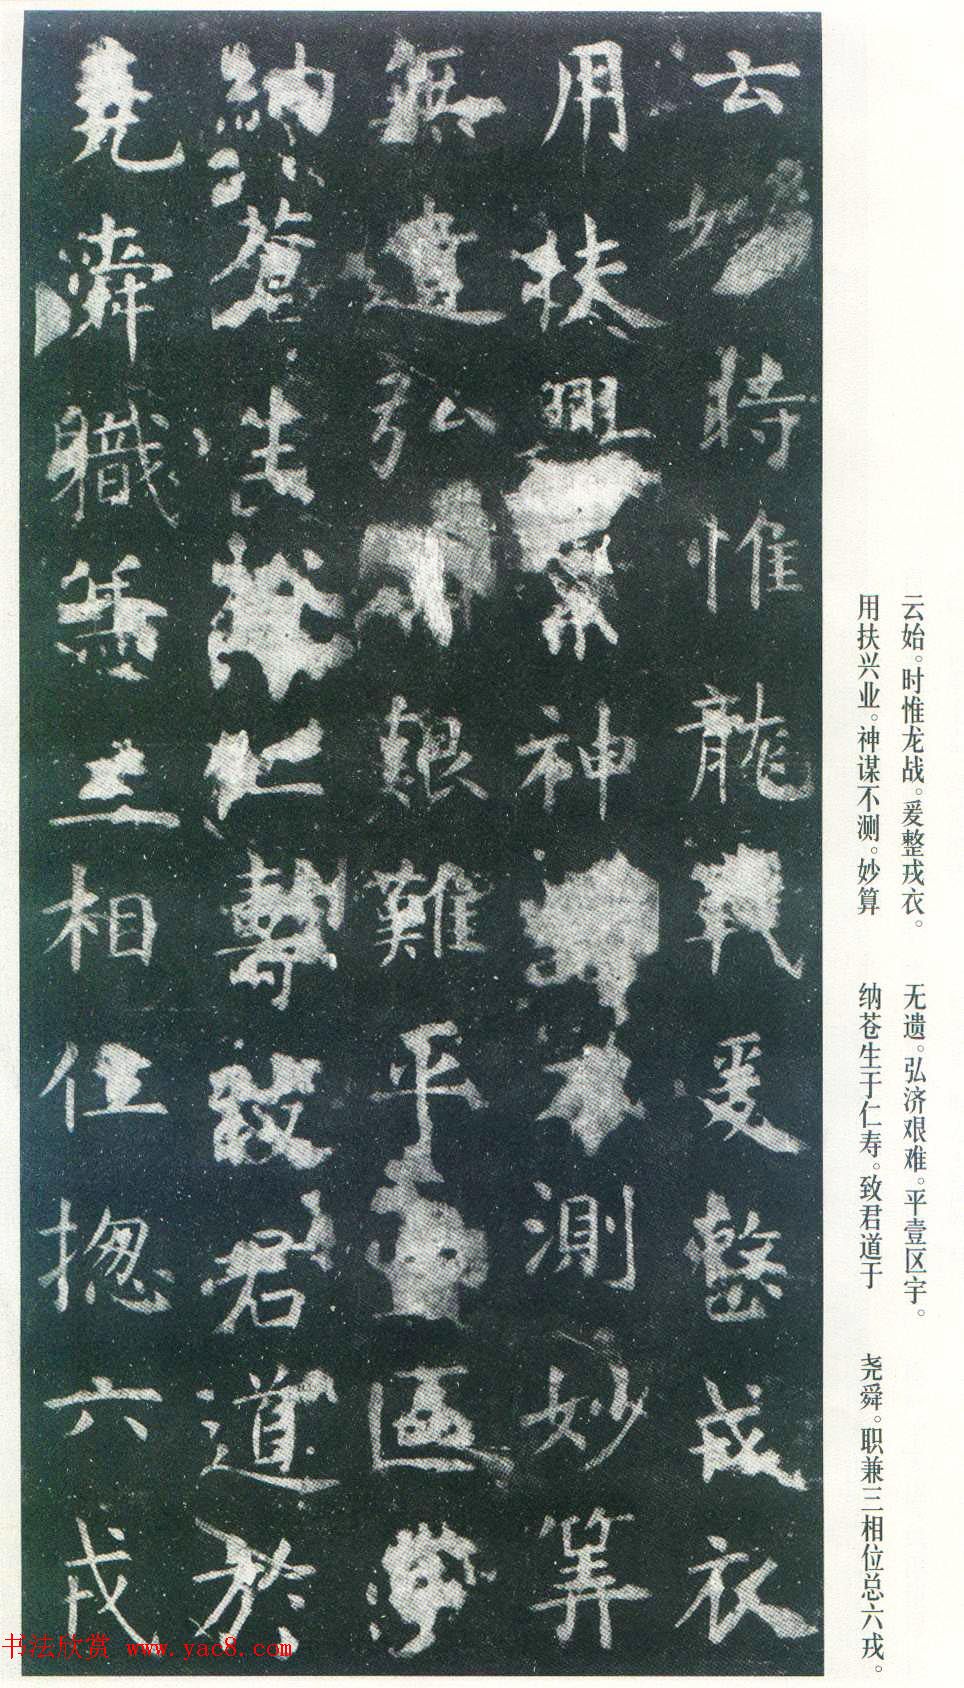 云始時惟龍戰爰整戎衣
用扶興業神謀不測妙筭
無遺弘濟艱難平壹區宇
納蒼生於仁壽致君道於
堯舜職兼三相位揔六戎
云始。时惟龙战。爰整戎衣。
用扶兴业。神谋不测。妙算
无遗。弘济艰难。平壹区宇。
纳苍生于仁寿。致君道于
尧舜。职兼三相位总六戎。
书法欣赏 www.yac8.com